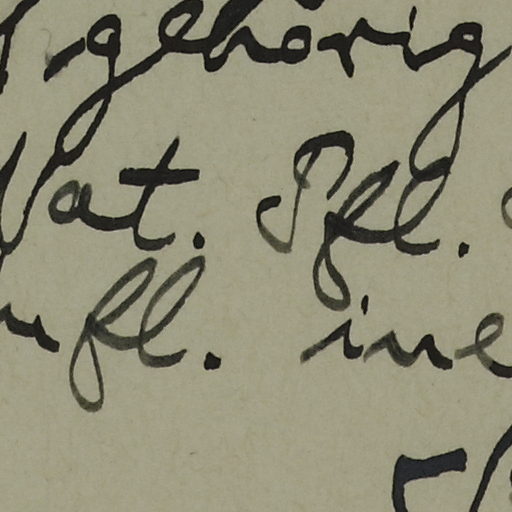 gehörig
Nat. Pfl.
nfl. ine